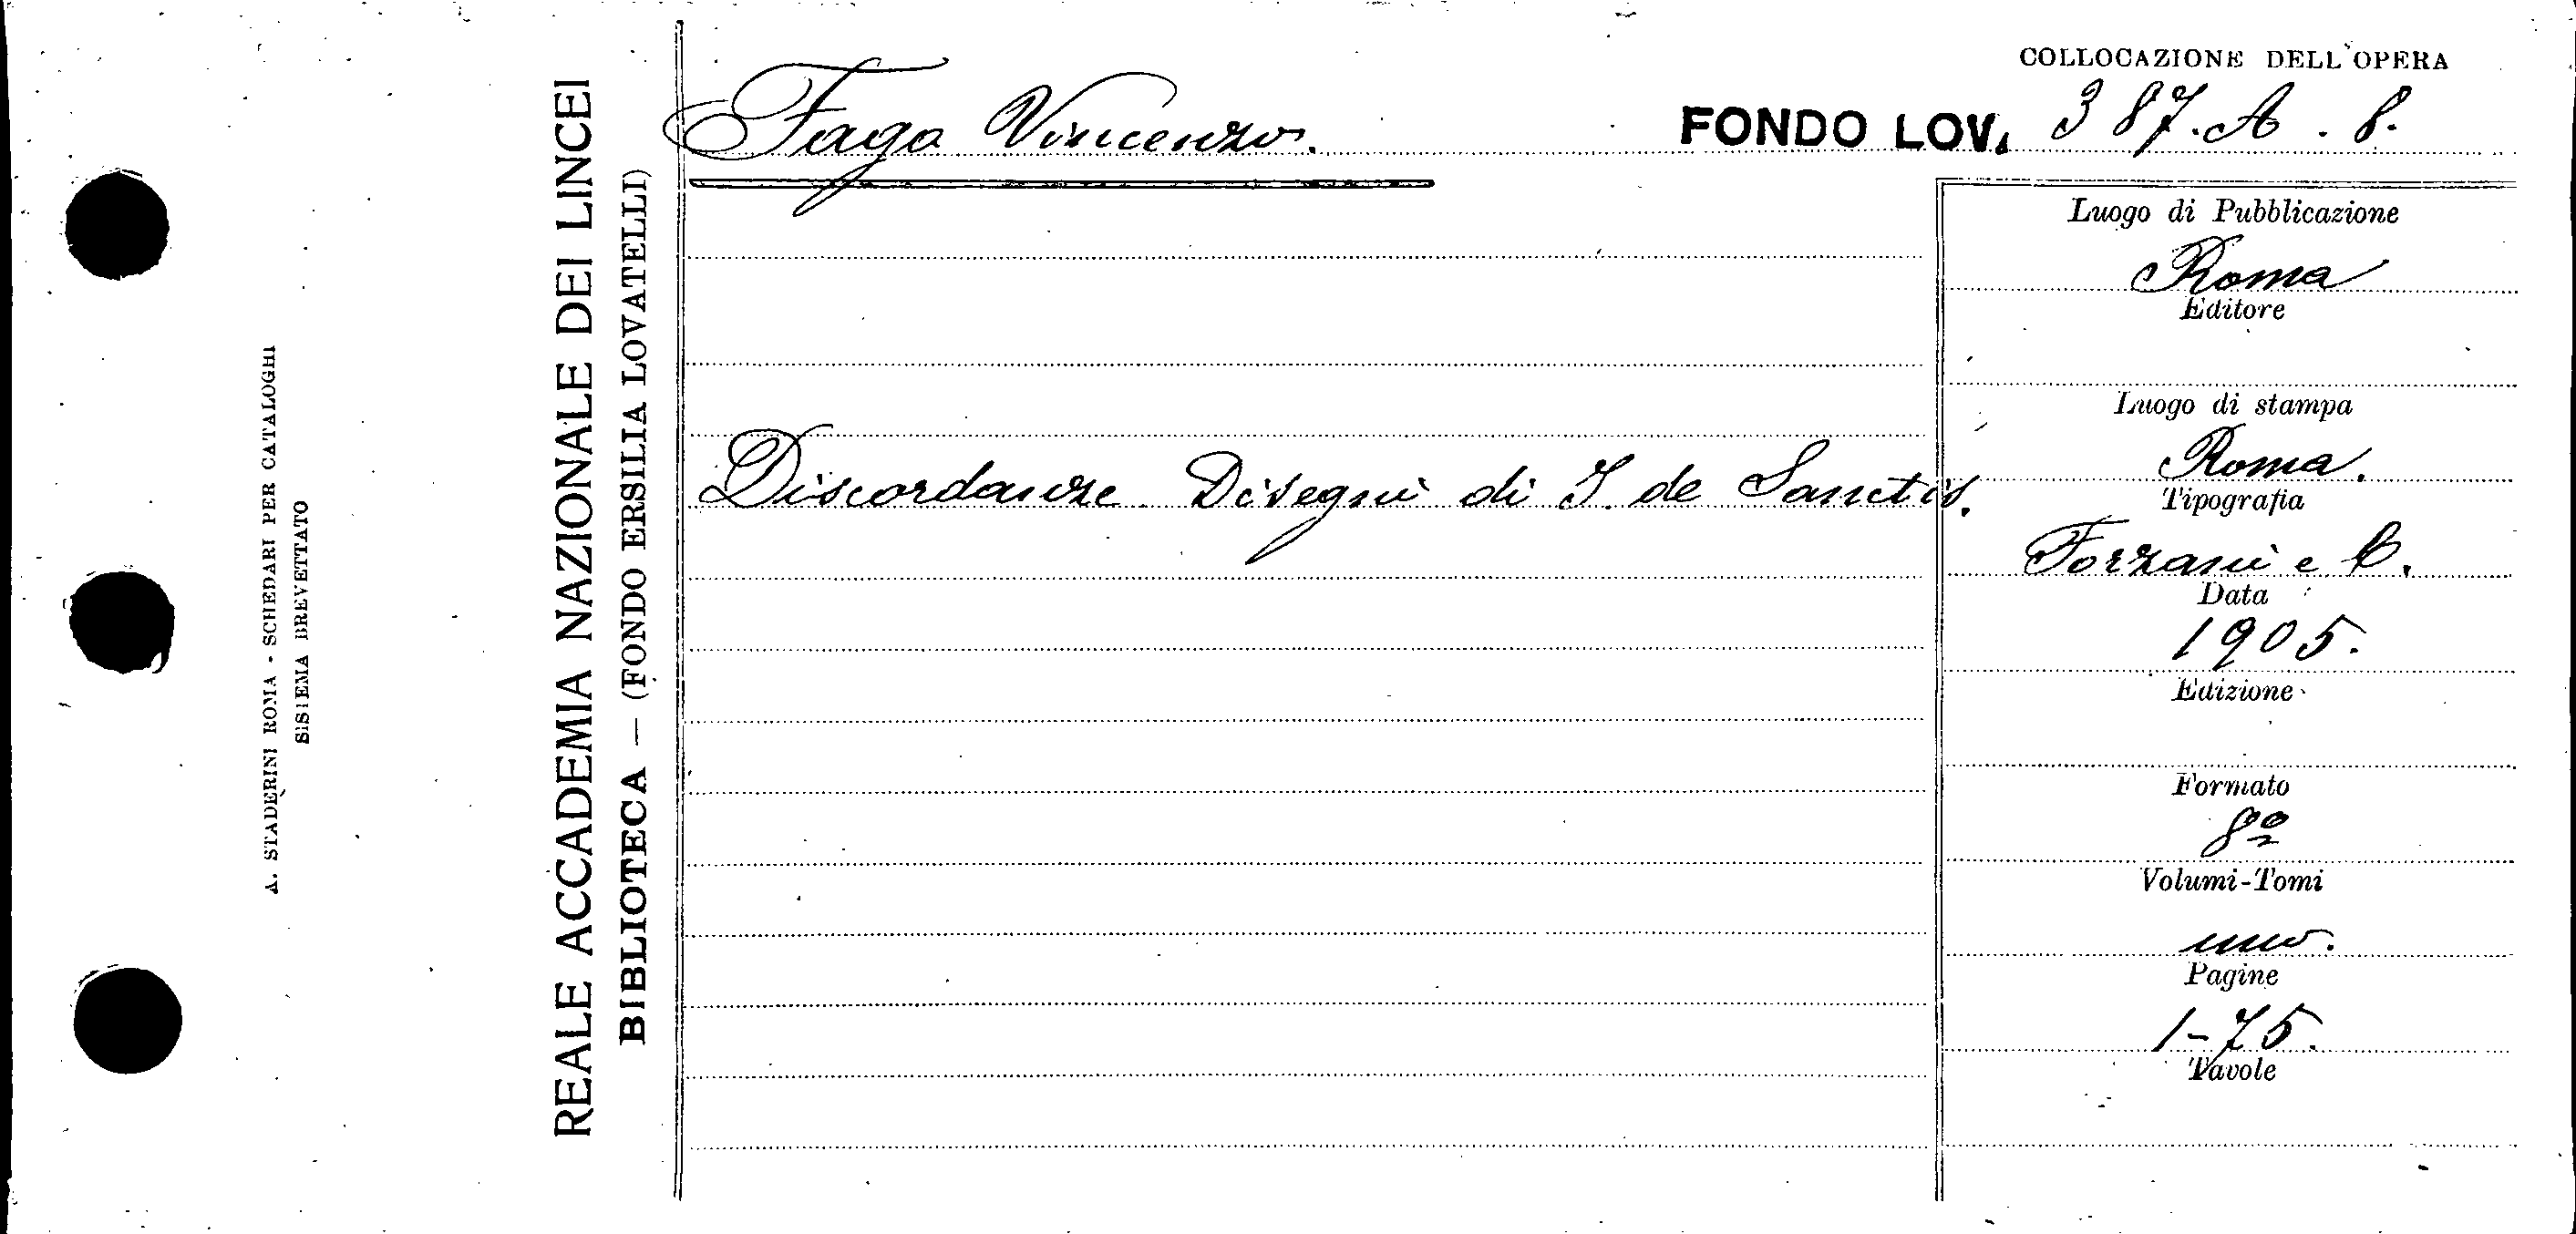 A. STADERINI ROMA - SCHEDARI PER CATALOGHI
SISTEMA BREVETTATO
REALE ACCADEMIA NAZIONALE DEI LINCEI
BIBLIOTECA — (FONDO ERSILIA LOVATELLI)
COLLOCAZIONE DELL'OPERA
Fago Vincenzo.
FONDO LOV. 387.A.8.
Discordanze. Disegni di I. de Sanctis.
Luogo di Pubblicazione
Roma
Editore
Luogo di stampa
Roma.
Tipografia
Forzani e C.
Data
1905.
Edizione
Formato
8º
Volumi-Tomi
uno.
Pagine
1-75.
Tavole